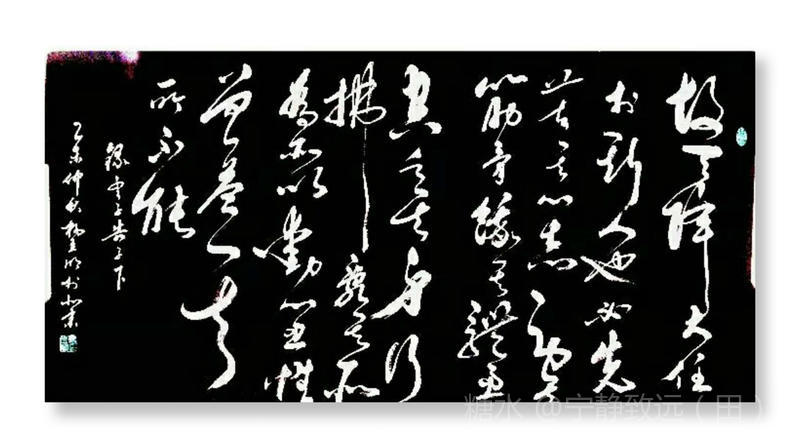 故天降大任
於斯人也必先
苦其心志勞其
筋骨餓其體膚
空乏其身行
拂亂其所
為所以動心忍性
曾益其
所不能
錄孟子告子下
乙未仲秋
糖水 @宁静致远（田）